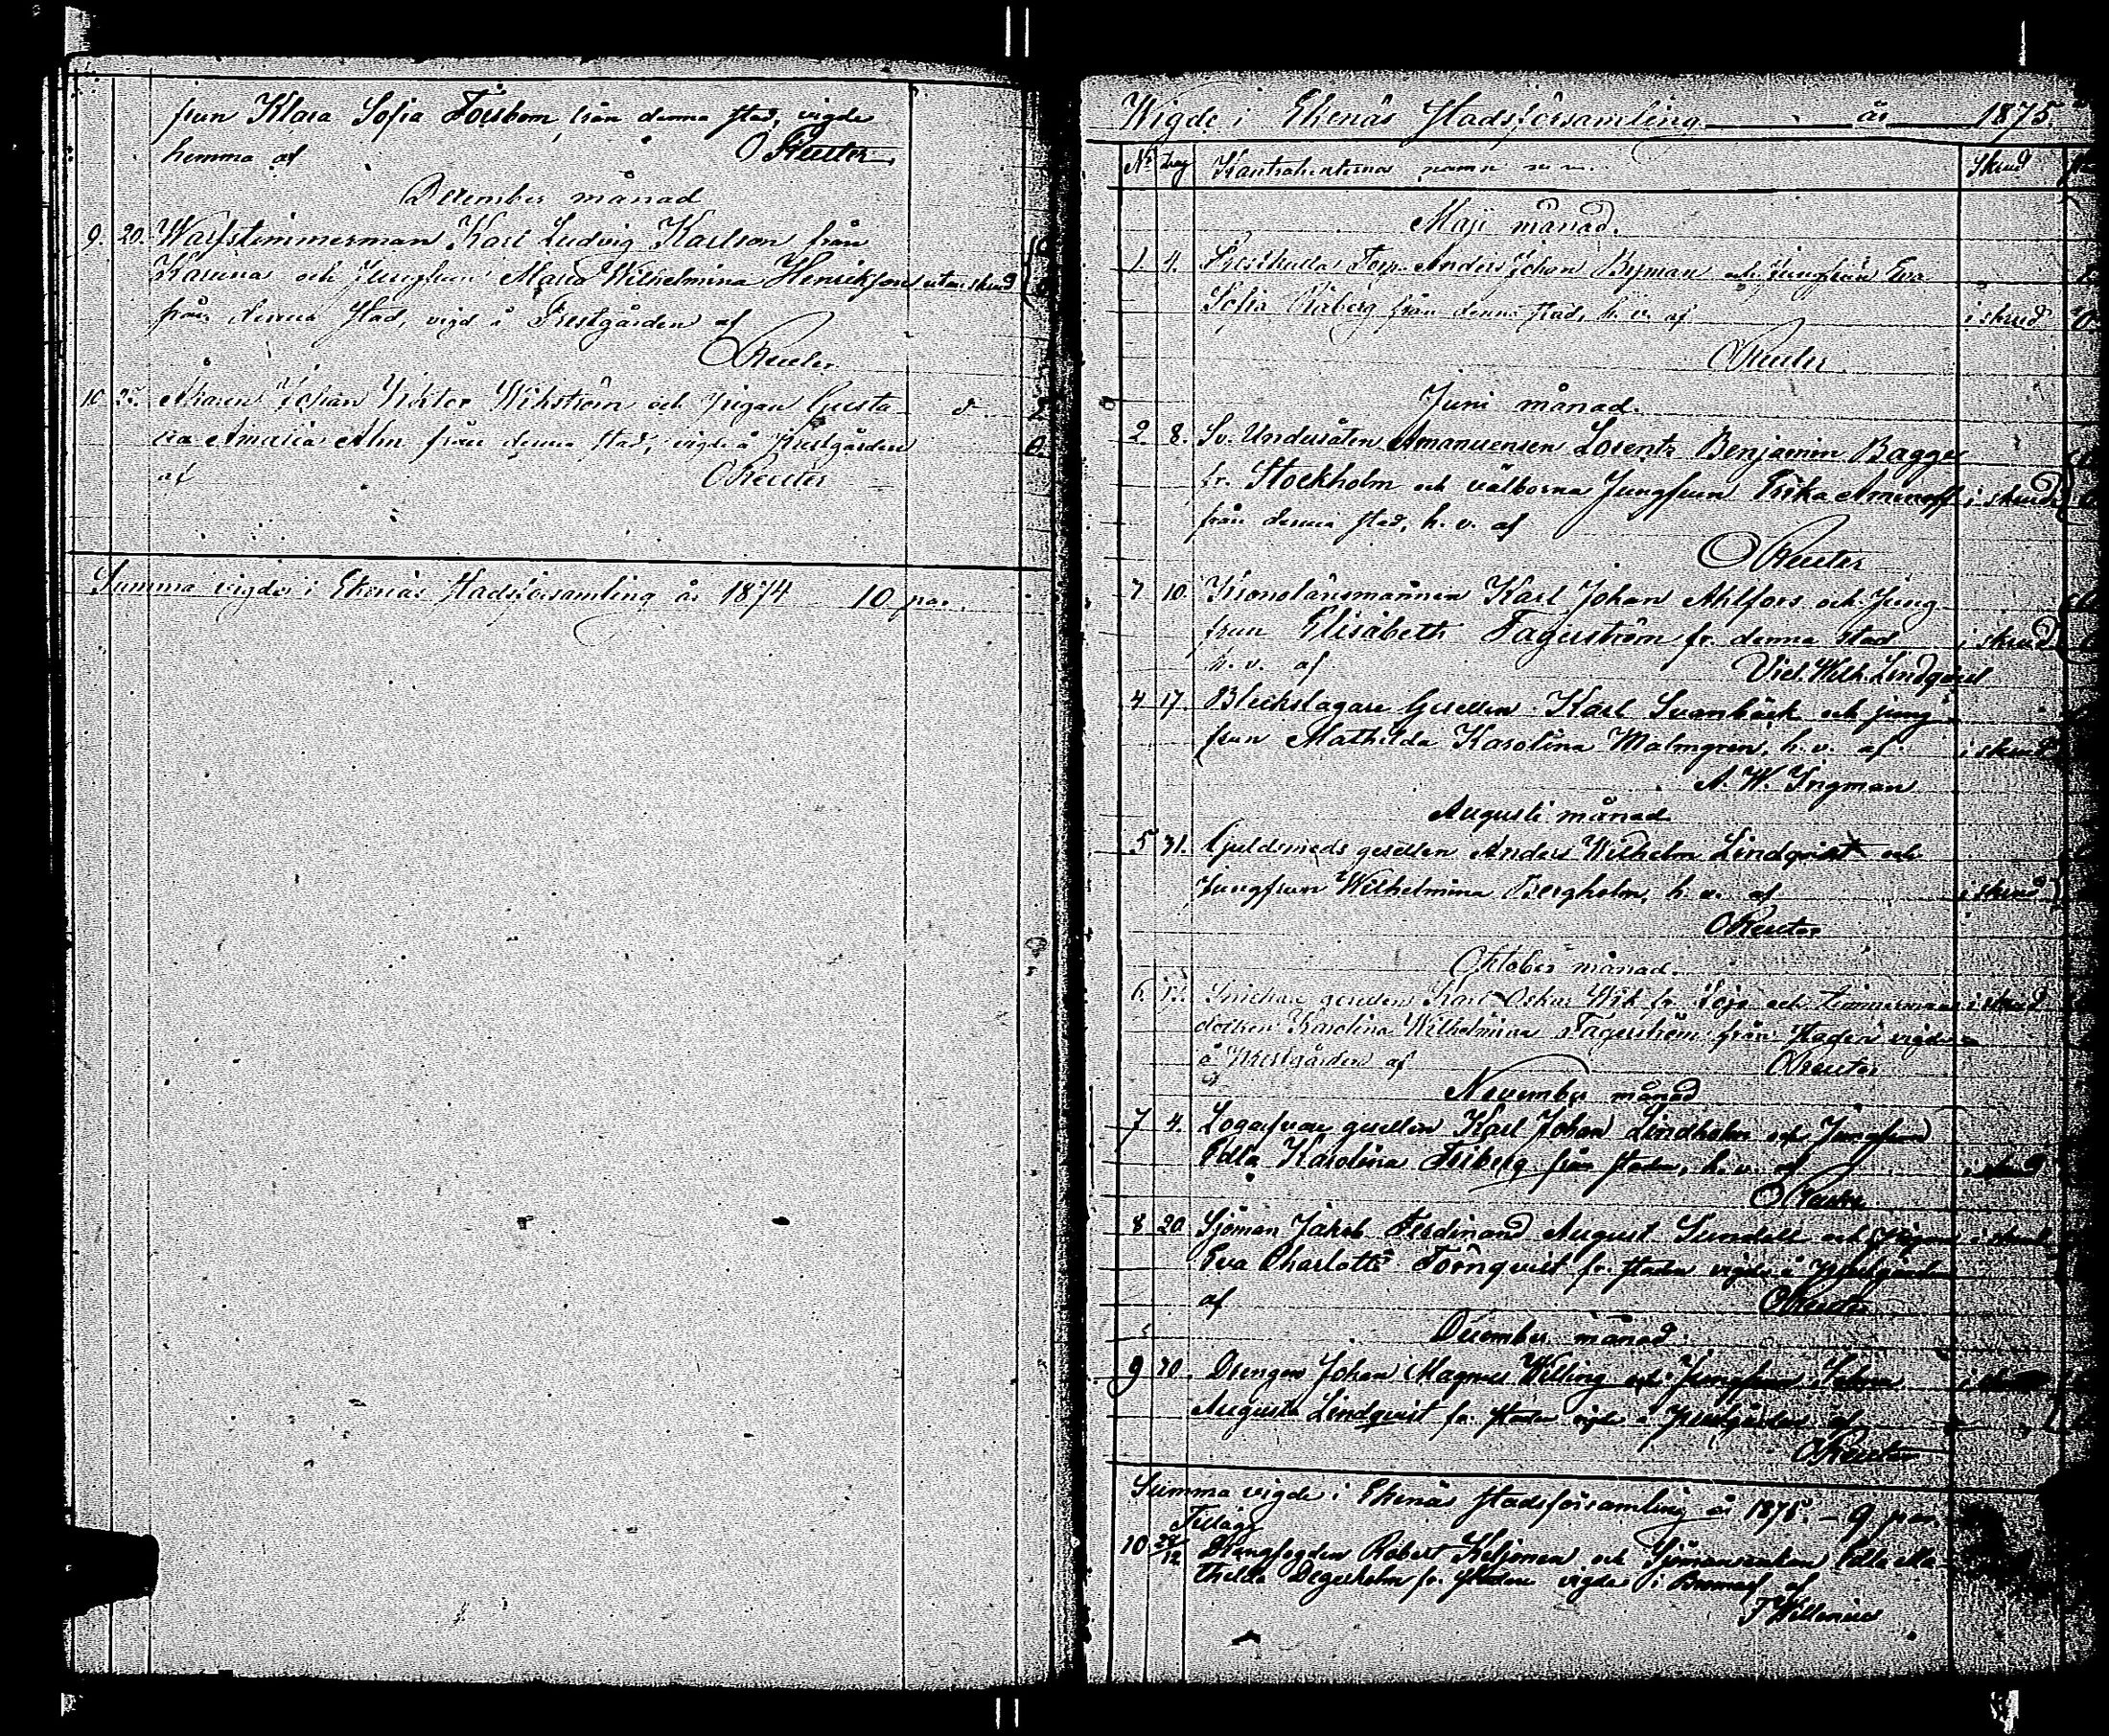 frun Klara Sofia Forsbom från denna stad, vigde
hemma af O Reuter.
December månad
9. 20. Warfstimmerman Karl Ludvig Karlson från
Karuna och Jungfrun Maria Wilhelmina Henrikson utan skrud
från denna stad, vigd å Prestgården af
O Reuter
10 Åkaren Johan Viktor Wikström och Pigan Gusta
va Amalia Alm från denna stad, vigde å Prestgården
af O Reuter
Summa vigde i Ekenäs stadsförsamling år 1874 10 par.
Wigde i Ekenäs Stadsförsamling år 1875
No Dag Kontrahenternas namn m. m. Skrud
Maji månad.
1. 4. Torp. Anders Johan Byman och Jungfrun Eva
Sofia från denna stad, h. v. af i skrud
O Reuter
Juni månad.
2. 8. Sv. Undersåten Amanuensen Lorentz Benjamin Bagge
fr. Stockholm och välborna Jungfrun Erika Aminoff i skrud
från denna stad, h. v. af
O Reuter
3 10. Kronolänsmannen Karl Johan Ahlfors och Jung
frun Elisabeth Fagerström fr. denna stad i skrud
h. v. af Vict. Wilh. Lindqvist
4 17. Bleckslagare Gesellen Karl Svanbäck och jung
frun Mathilda Karolina Malmgren, h. v. af i skrud
A. W. Ingman
Augusti månad.
5 31. Guldsmeds gesellen Anders Wilhelm Lindqvist och
Jungfrun Wilhelmina Bergholm, h. v. af i skrud
O Reuter
Oktober månad.
6. Snickare gesellen Karl Oskar Wik fr. Pojo och timmermans i skrud
dottren Karolina Wilhelmina Fagerström från staden vigde
å Prestgården af O Reuter
November månad
7 4. Logarfvare gesellen Karl Johan Lindholm och Jungfrun
Edla Karolina Friberg från staden, h. v. af i skrud
O Reuter
8 20. Sjöman Jakob Ferdinand August Sundell och Pigan i skrud
Eva Charlotta Törnqvist fr. staden vigde å Prestgården
af O Reuter
December månad.
9 30. Drengen Johan Magnus Welling och Jungfrun
Augusta Lindqvist fr. staden vigde å Prestgården af
O Reuter
Summa vigde i Ekenäs stadsförsamling år 1875. - 9 par.
Tillägg
10 Robert och Sjömansenkan Edla Ma
thilda Degerholm fr. staden vigde i Bromarf af
F Willenius